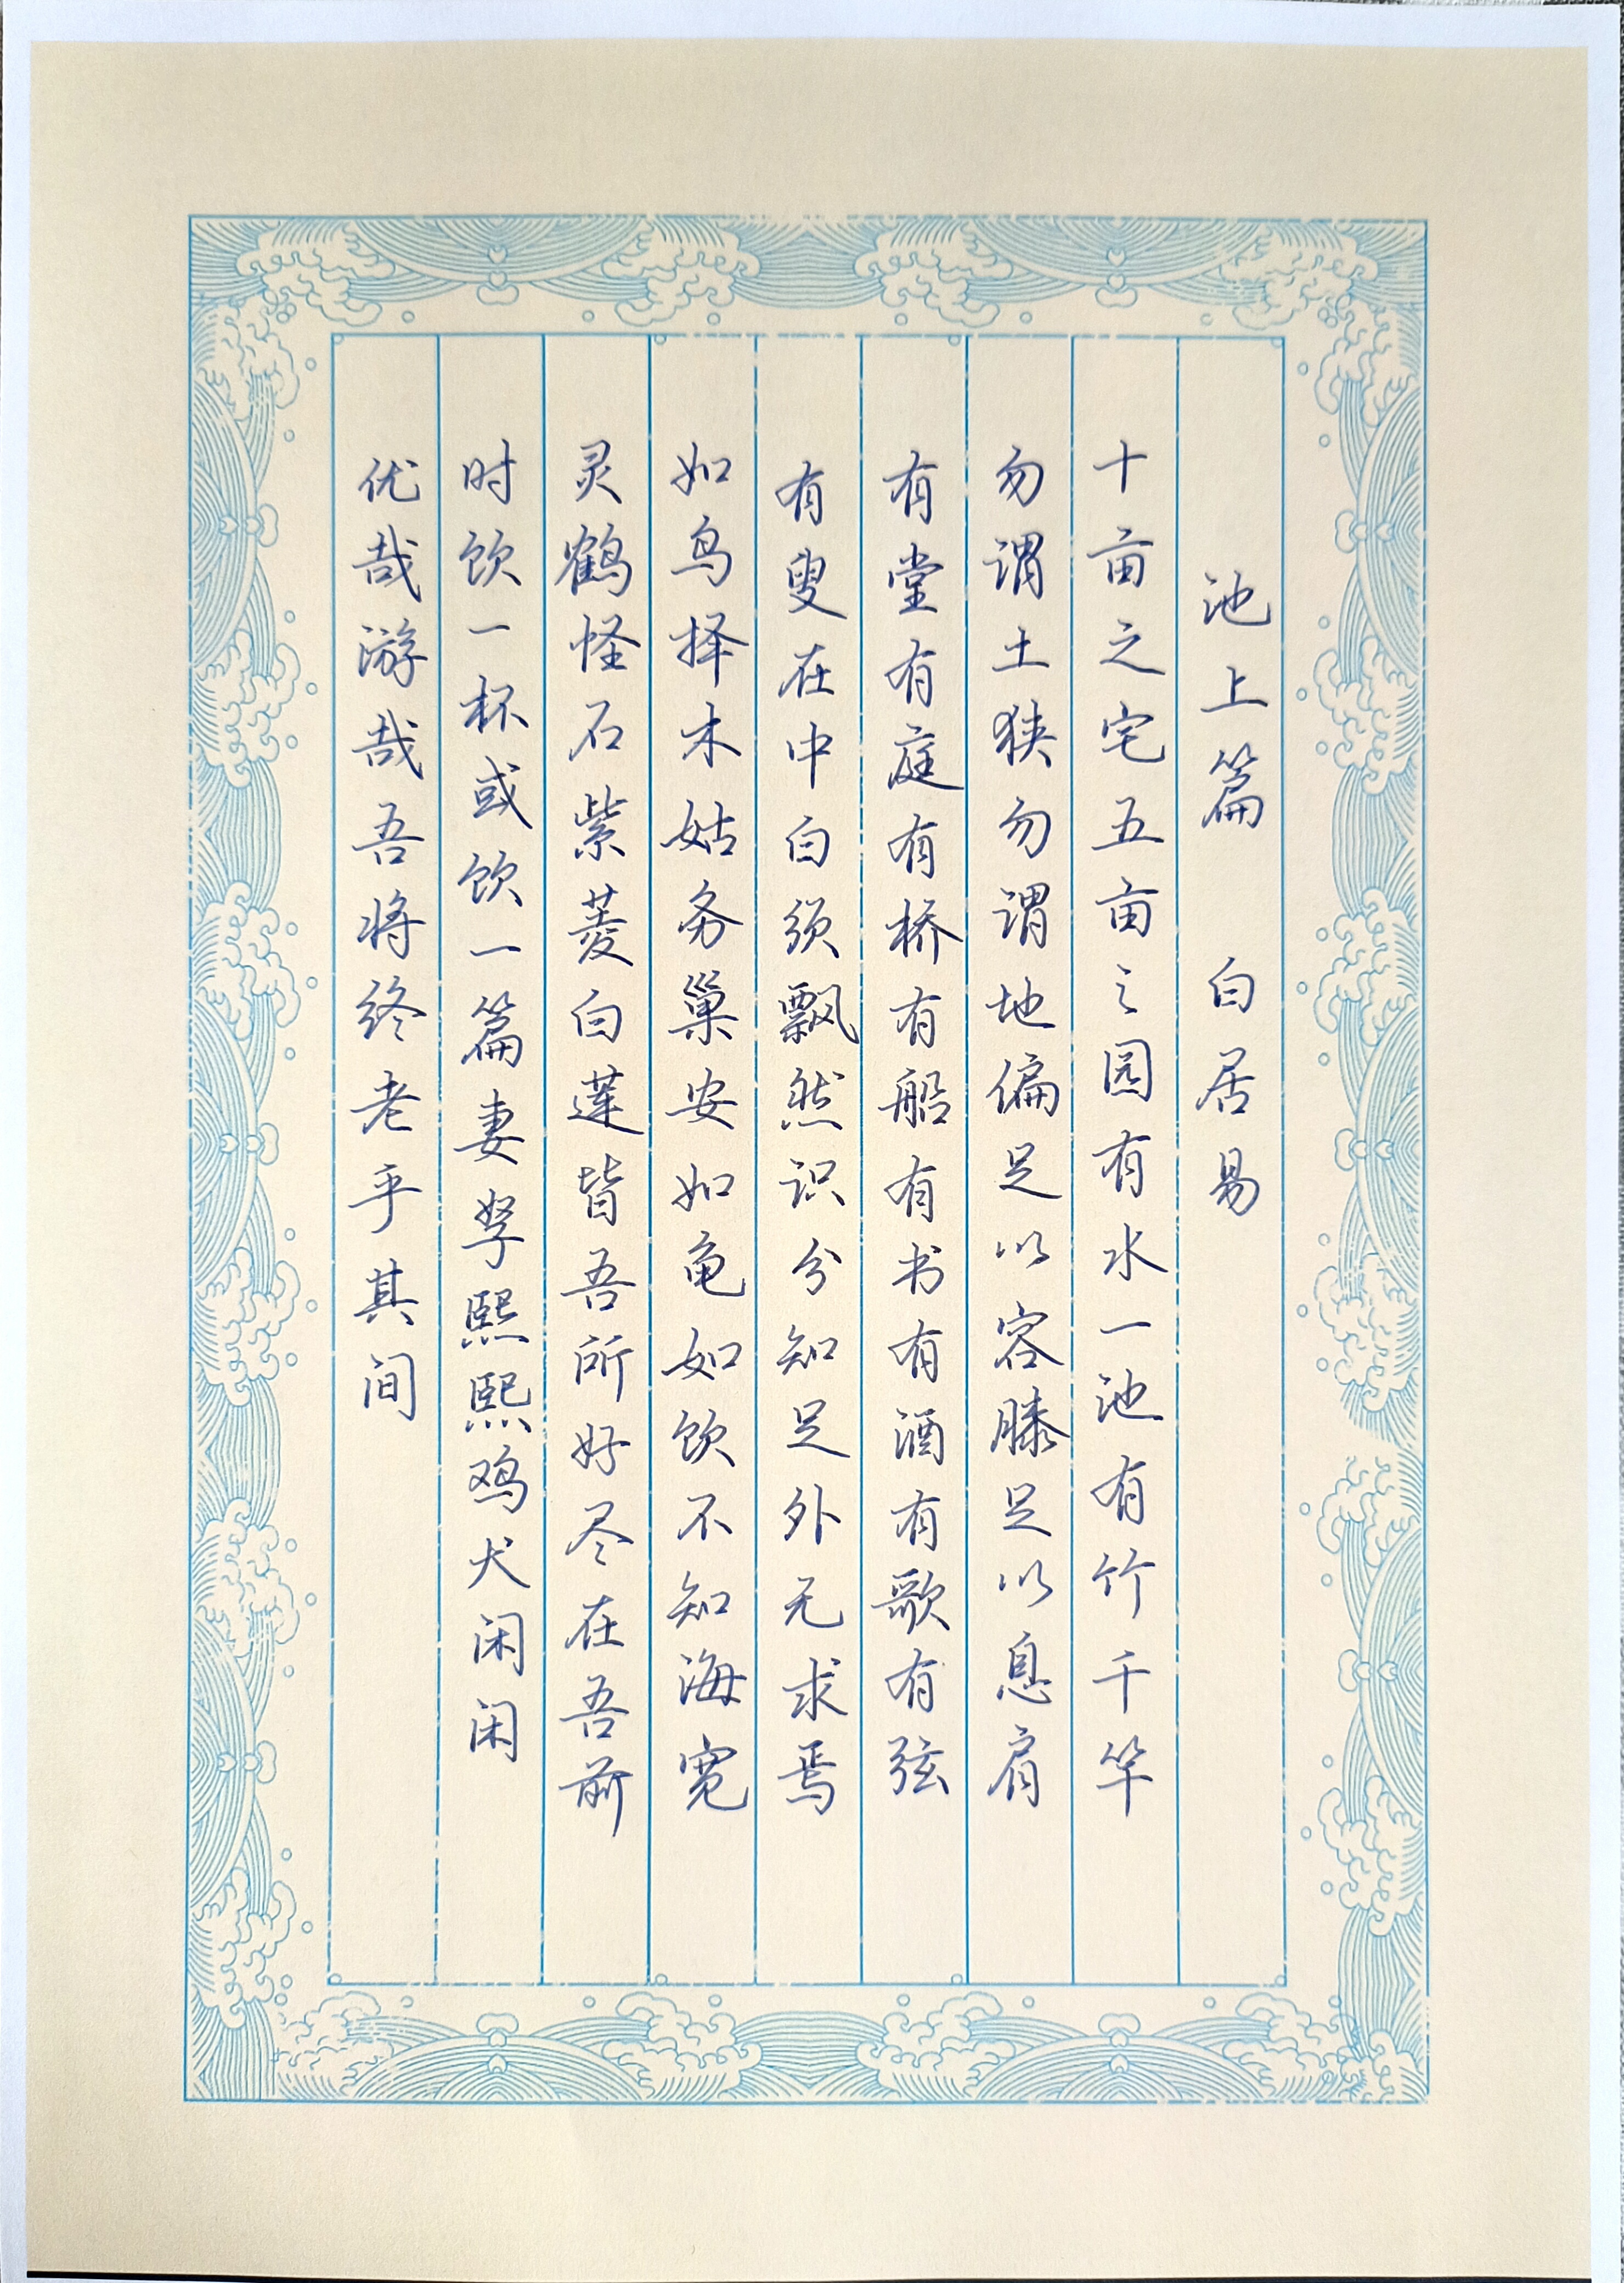 池上篇 白居易
十亩之宅五亩之园有水一池有竹千竿
勿谓土狭勿谓地偏足以容膝足以息肩
有堂有庭有桥有船有书有酒有歌有弦
有叟在中白须飘然识分知足外无求焉
如鸟择木姑务巢安如龟如饮不知海宽
灵鹤怪石紫菱白莲皆吾所好尽在吾前
时饮一杯或饮一篇妻孥熙熙鸡犬闲闲
优哉游哉吾将终老乎其间